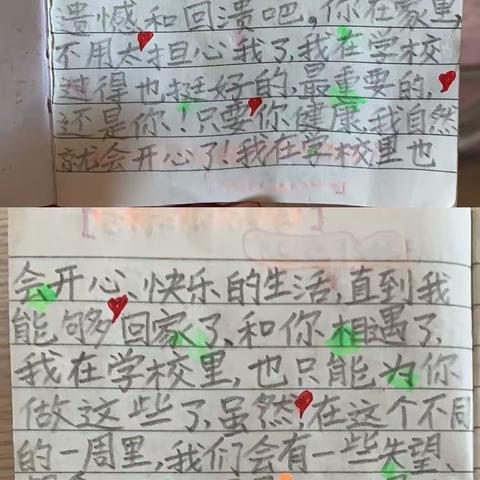 遗憾和回溃吧,你在家里,
不用太担心我了,我在学校
过得也挺好的,最重要的,
还是你!只要你健康,我自然
就会开心了!我在学校里也
会开心、快乐的生活,直到我
能够回家了、和你相遇了,
我在学校里,也只能为你
做这些了,虽然,在这个不周
的一周里,我们会有一些失望、